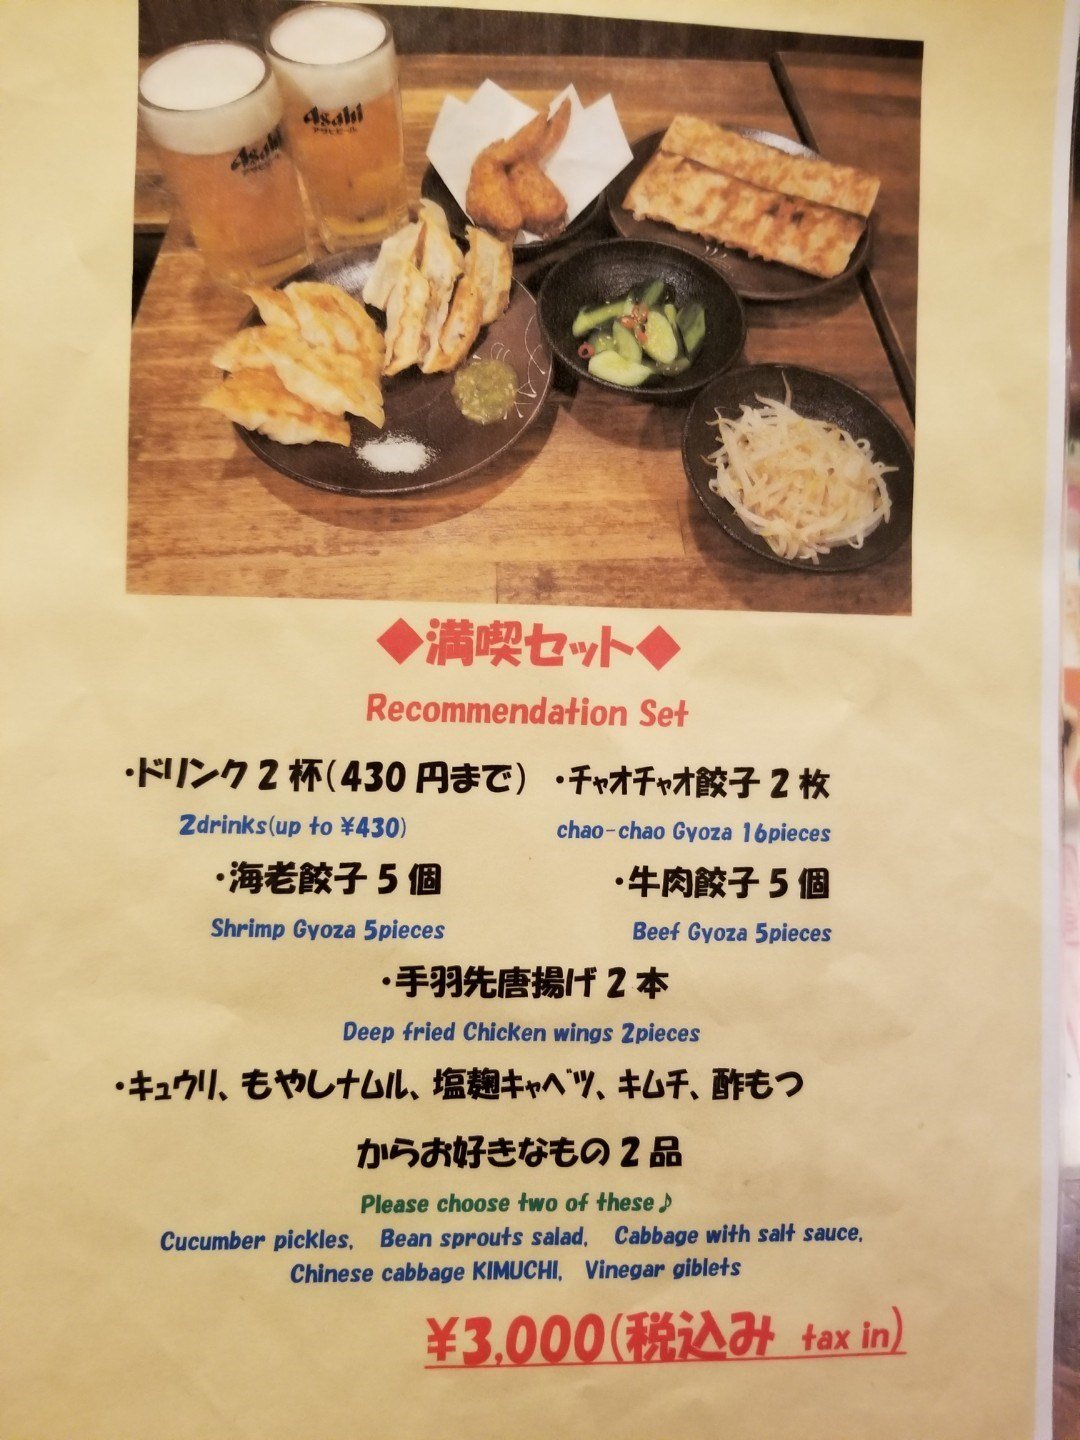 Asahi
アサヒビール
Asahi
アサヒビール
◆満喫セット◆
Recommendation Set
・ドリンク2杯(430円まで) ・チャオチャオ餃子2枚
2drinks(up to ¥430) chao-chao Gyoza 16pieces
・海老餃子5個 ・牛肉餃子5個
Shrimp Gyoza 5pieces Beef Gyoza 5pieces
・手羽先唐揚げ2本
Deep fried Chicken wings 2pieces
・キュウリ、もやしナムル、塩麹キャベツ、キムチ、酢もつ
からお好きなもの2品
Please choose two of these♪
Cucumber pickles, Bean sprouts salad, Cabbage with salt sauce,
Chinese cabbage KIMUCHI, Vinegar giblets
¥3,000(税込み tax in)